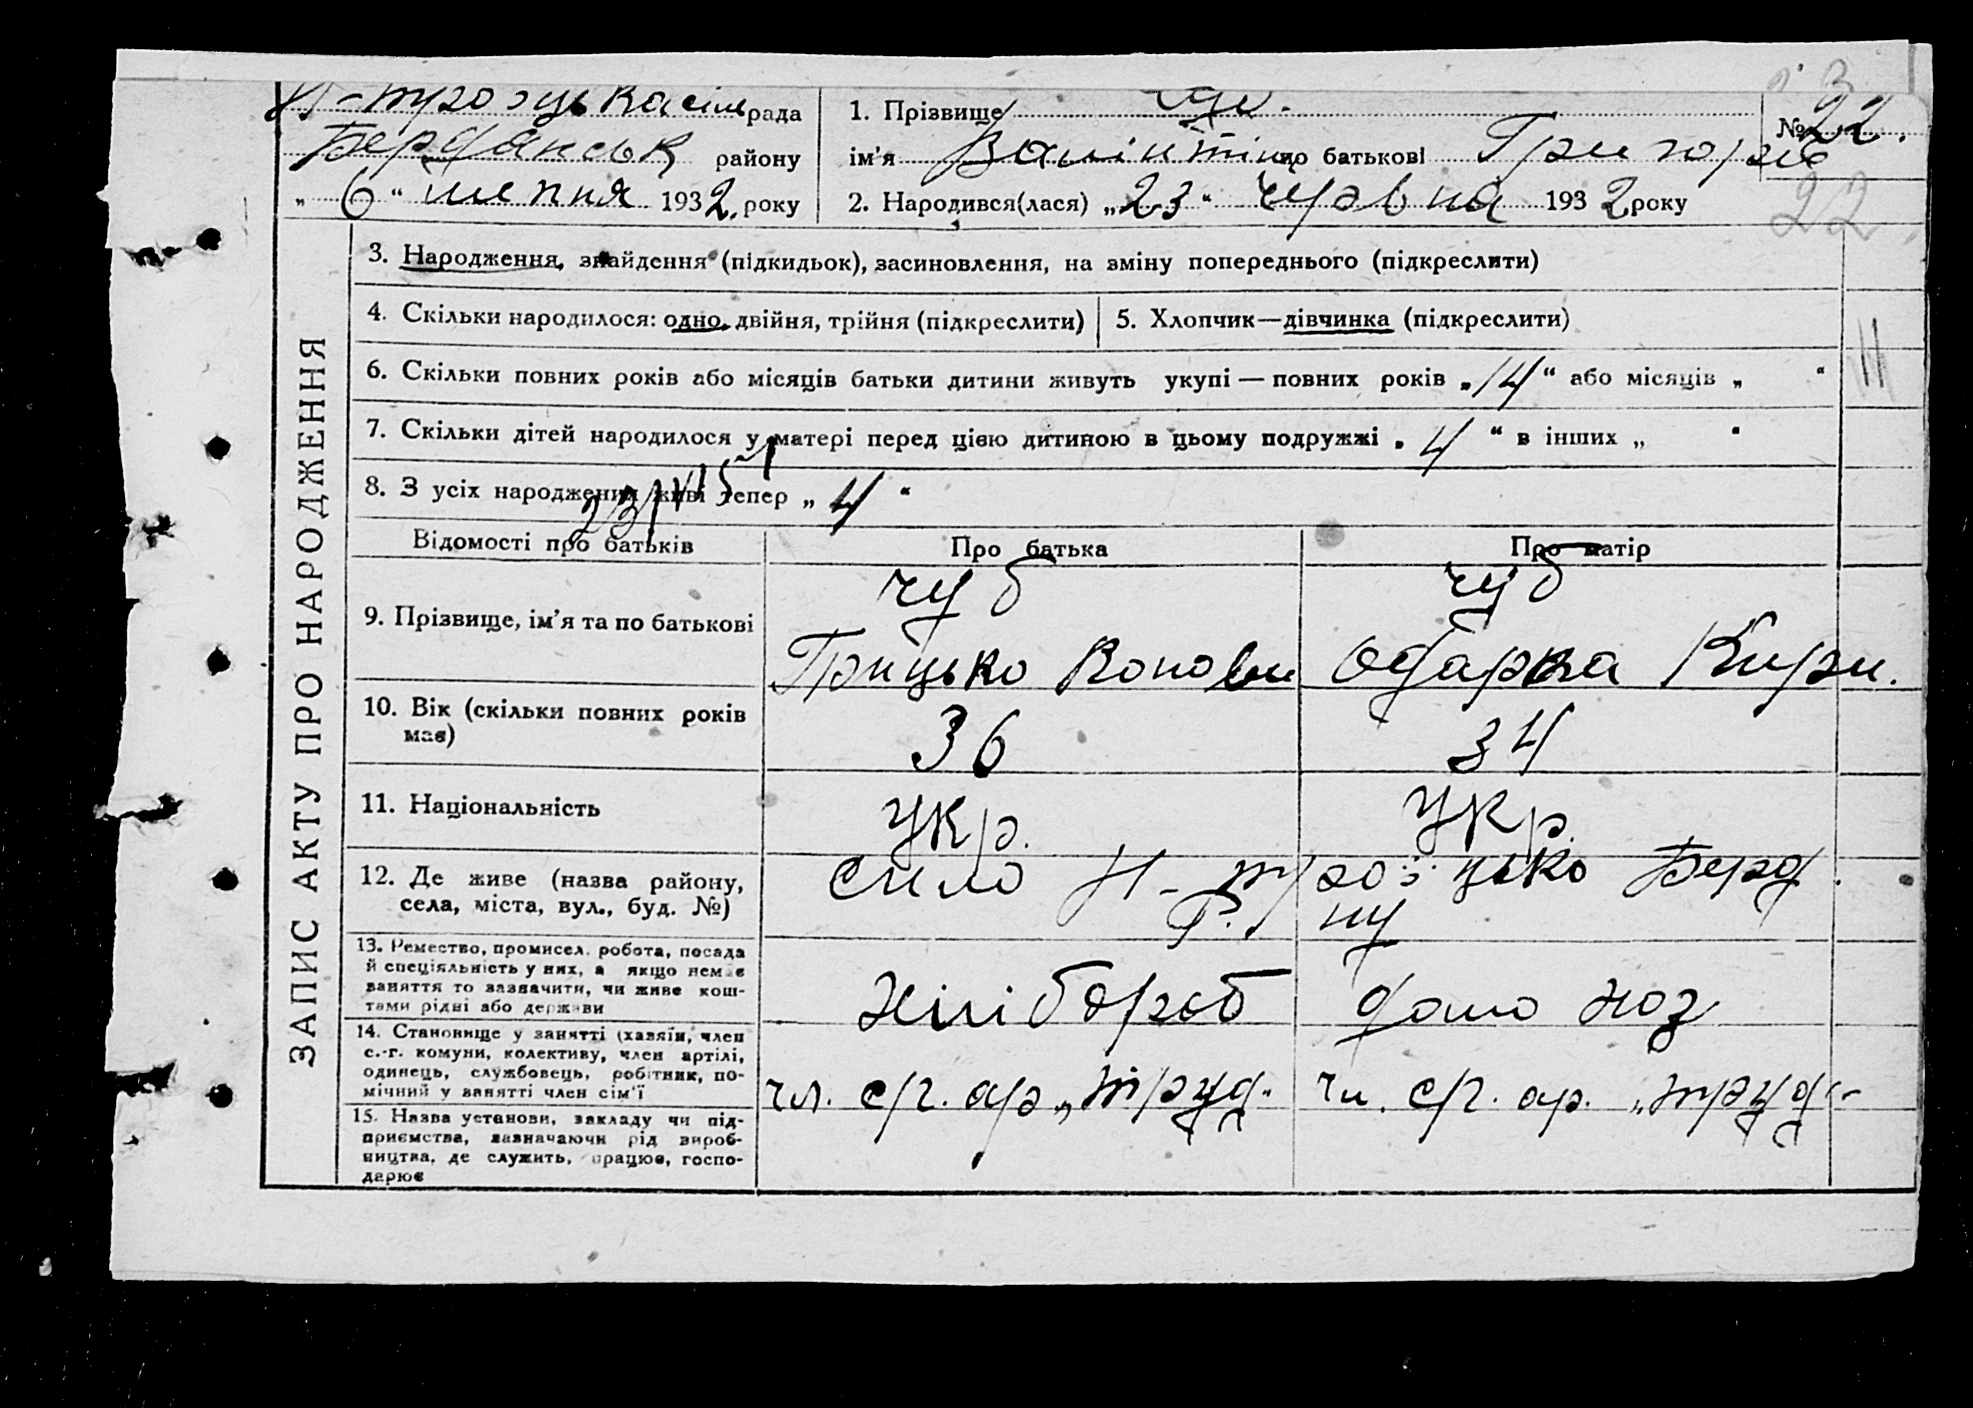 Н-троэцька сіль рада
Берданськ району
„ 6 “ липня 1932. року
1. Прізвище Чуб.
ім’я Валінтіна по батькові Григорів
№ 22.
22
2. Народився(лася) „23“ червня 1932 року
ЗАПИС АКТУ ПРО НАРОДЖЕННЯ
3. Народження, знайдення (підкидьок), засиновлення, на зміну попереднього (підкреслити)
4. Скільки народилося: одно, двійня, трійня (підкреслити)
5. Хлопчик—дівчинка (підкреслити)
6. Скільки повних років або місяців батьки дитини живуть укупі — повних років „14“ або місяців „ “
7. Скільки дітей народилося у матері перед цією дитиною в цьому подружжі „ 4 “ в інших „ “
8. З усіх народжених живі тепер „ 4 “
Відомості про батьків
Про батька
Про матір
9. Прізвище, ім’я та по батькові
Чуб
Грицько
Чуб
Одарка Кири.
10. Вік (скільки повних років
має)
36
34
11. Національність
Укр.
Укр.
12. Де живе (назва району,
села, міста, вул., буд. №)
село Н-троэцько Берд.
Р. ну
13. Ремество, промисел, робота, посада
й спеціяльність у них, а якщо немає
заняття то зазначити, чи живе кош-
тами рідні або держави
хлібороб
домо хоз
14. Становище у занятті (хазяїн, член
с.-г. комуни, колективу, член артілі,
одинець, службовець, робітник, по-
мічний у занятті член сім’ї
чл. с/г. ар „труд“
чл. с/г. ар. „труд“
15. Назва установи, закладу чи під-
приємства, зазначаючи рід вироб-
ництва, де служить, працює, госпо-
дарює